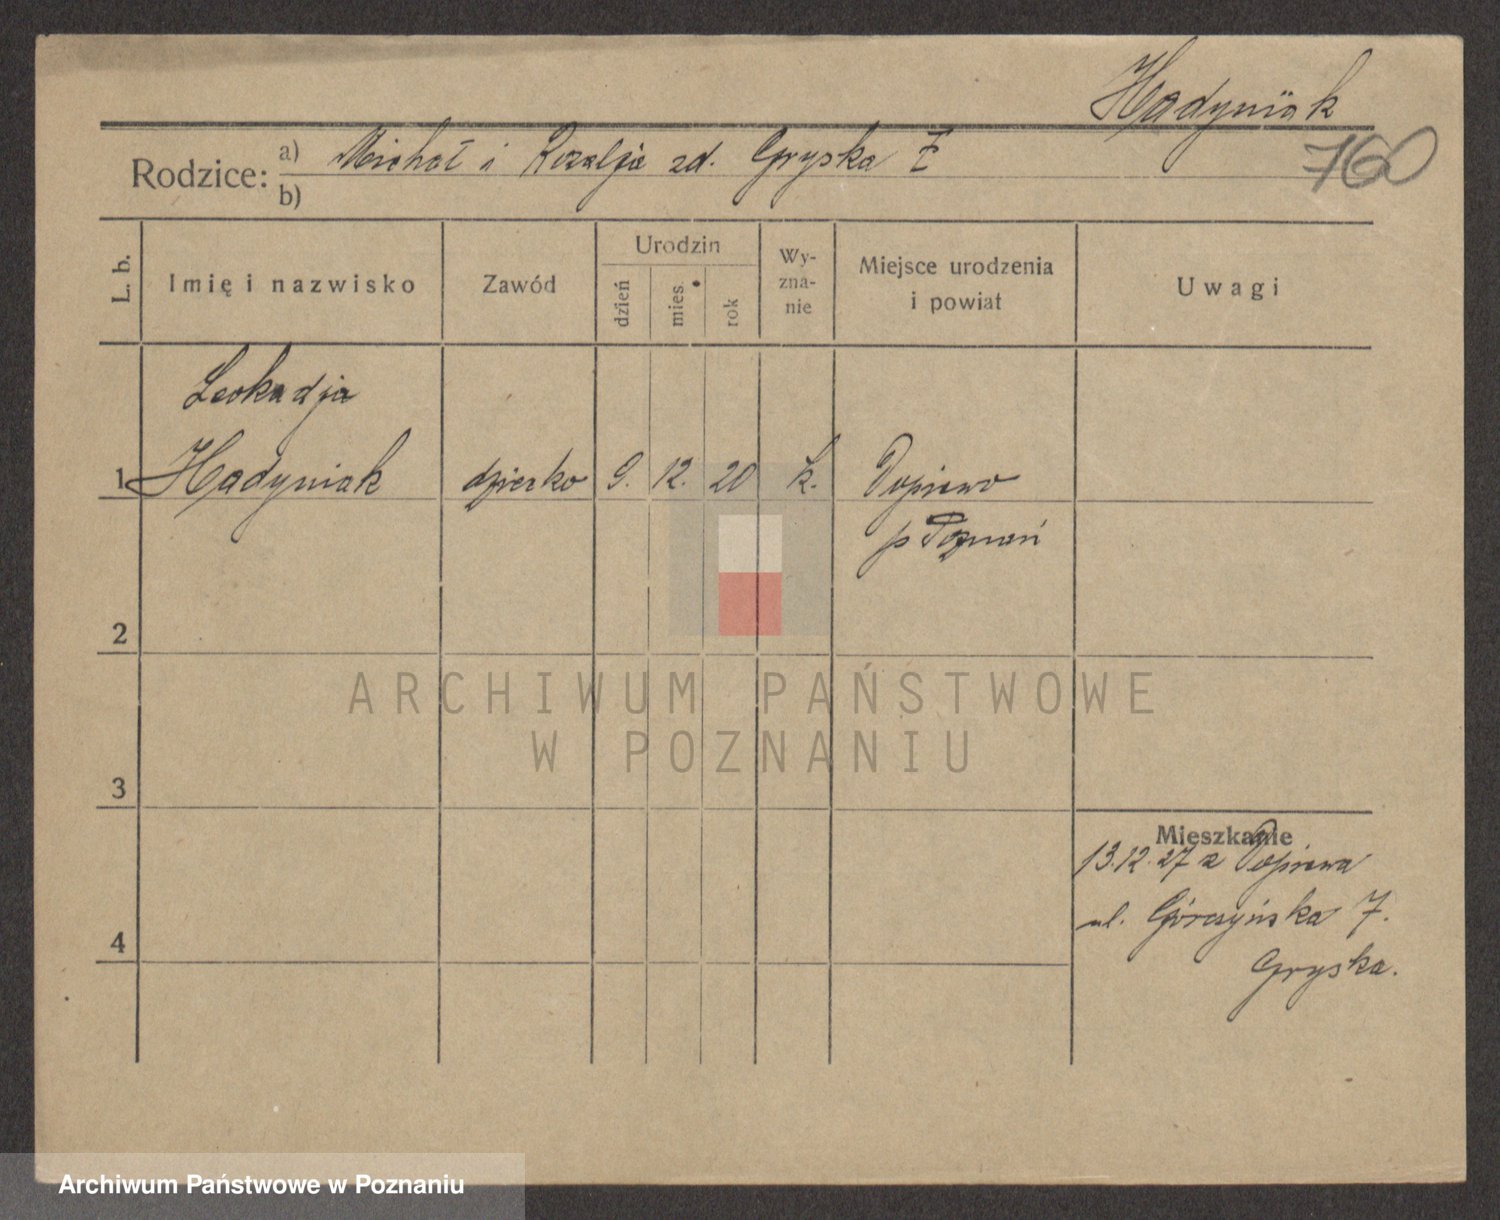 Hądyniak
760
Rodzice: a) Michał i Rozalja zd. Gryska Ż
b)
L. b. Imię i nazwisko Zawód Urodzin dzień mies. rok Wyznanie Miejsce urodzenia i powiat Uwagi
Leokadja
1 Hądyniak dziecko 9. 12. 20 k. Dopiewo
p Poznań
2
3
Mieszkanie
13.12.27 z Dopiewa
ul. Górczyńska 7.
4
Gryska.
ARCHIWUM PAŃSTWOWE
W POZNANIU
Archiwum Państwowe w Poznaniu